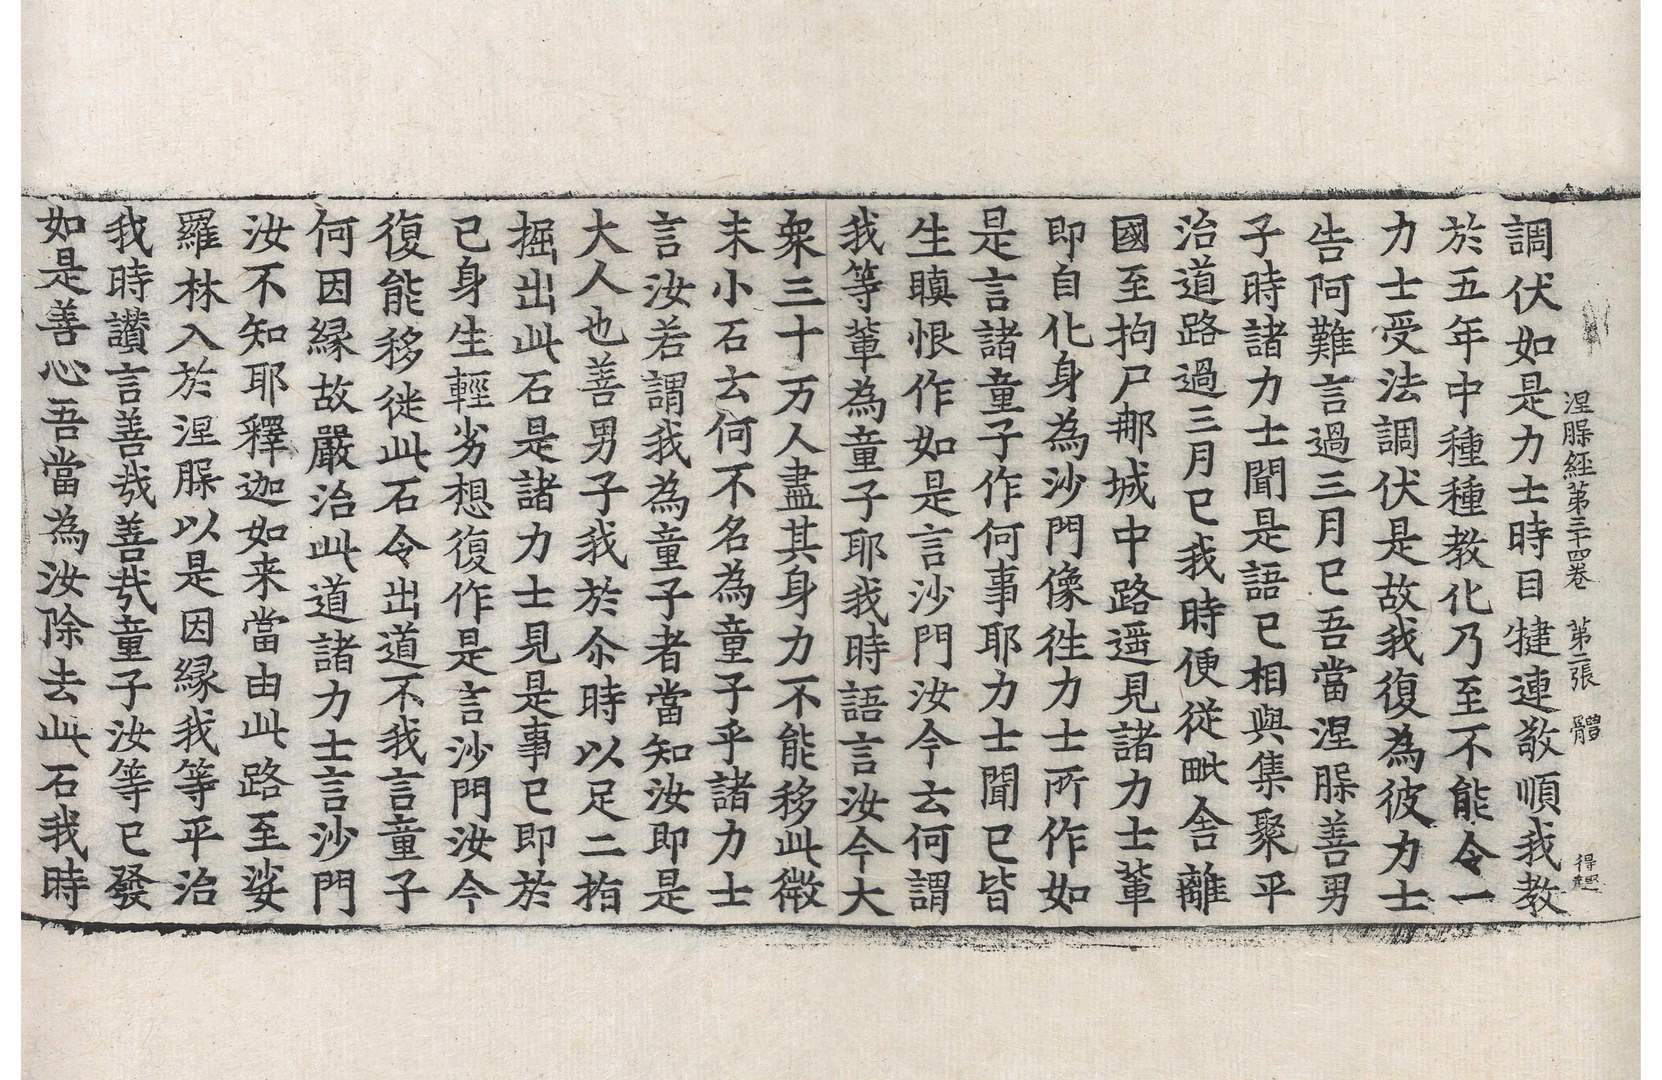 涅槃経第三十四卷　第二張　體　得趣
調伏如是力士時目犍連敬順我教
於五年中種種教化乃至不能令一
力士受法調伏是故我復為彼力士
告阿難言過三月已吾當涅槃善男
子時諸力士聞是語已相與集聚平
治道路過三月已我時便從毗舍離
國至拘尸那城中路遥見諸力士輩
即自化身為沙門像徃力士所作如
是言諸童子作何事耶力士聞已皆
生瞋恨作如是言沙門汝今云何謂
我等輩為童子耶我時語言汝今大
衆三十万人盡其身力不能移此微
末小石云何不名為童子乎諸力士
言汝若謂我為童子者當知汝即是
大人也善男子我於尒時以足二指
掘出此石是諸力士見是事已即於
已身生輕劣想復作是言沙門汝今
復能移徙此石令出道不我言童子
何因縁故嚴治此道諸力士言沙門
汝不知耶釋迦如来當由此路至娑
羅林入於涅槃以是因縁我等平治
我時讚言善哉善哉童子汝等已發
如是善心吾當為汝除去此石我時